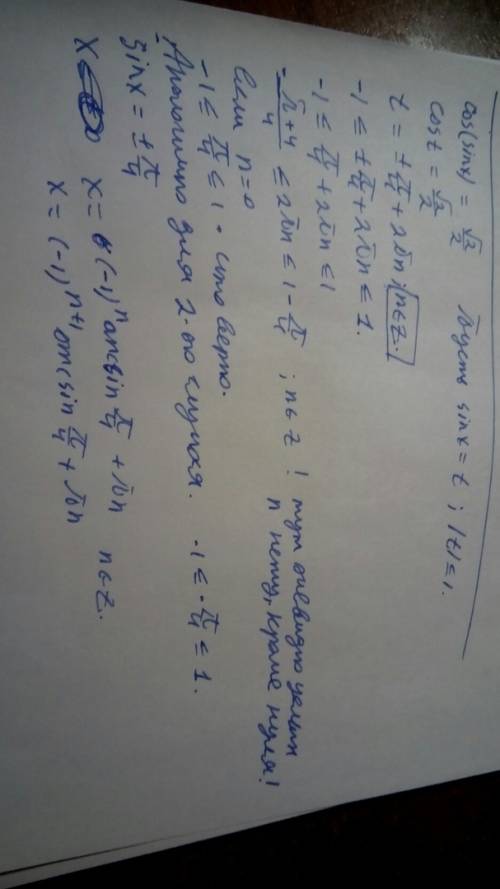 cos(sinx) = √2/2 Пусть sinx = t ; |t| ≤ 1.
cost = √2/2
t = ± π/4 + 2πn ; n∈z.
-1 ≤ ± π/4 + 2πn ≤ 1.
-1 ≤ π/4 + 2πn ≤ 1
- π+4/4 ≤ 2πn ≤ 1 - π/4 ; n∈z ! тут очевидно целых
n нету, кроме нуля!
Если n=0
-1 ≤ π/4 ≤ 1 . что верно.
Аналогично для 2-ого случая. -1 ≤ - π/4 ≤ 1.
sinx = ± π/4
x x = (-1)ⁿ arcsin π/4 + πn n∈z.
x = (-1)ⁿ⁺¹ arcsin π/4 + πn